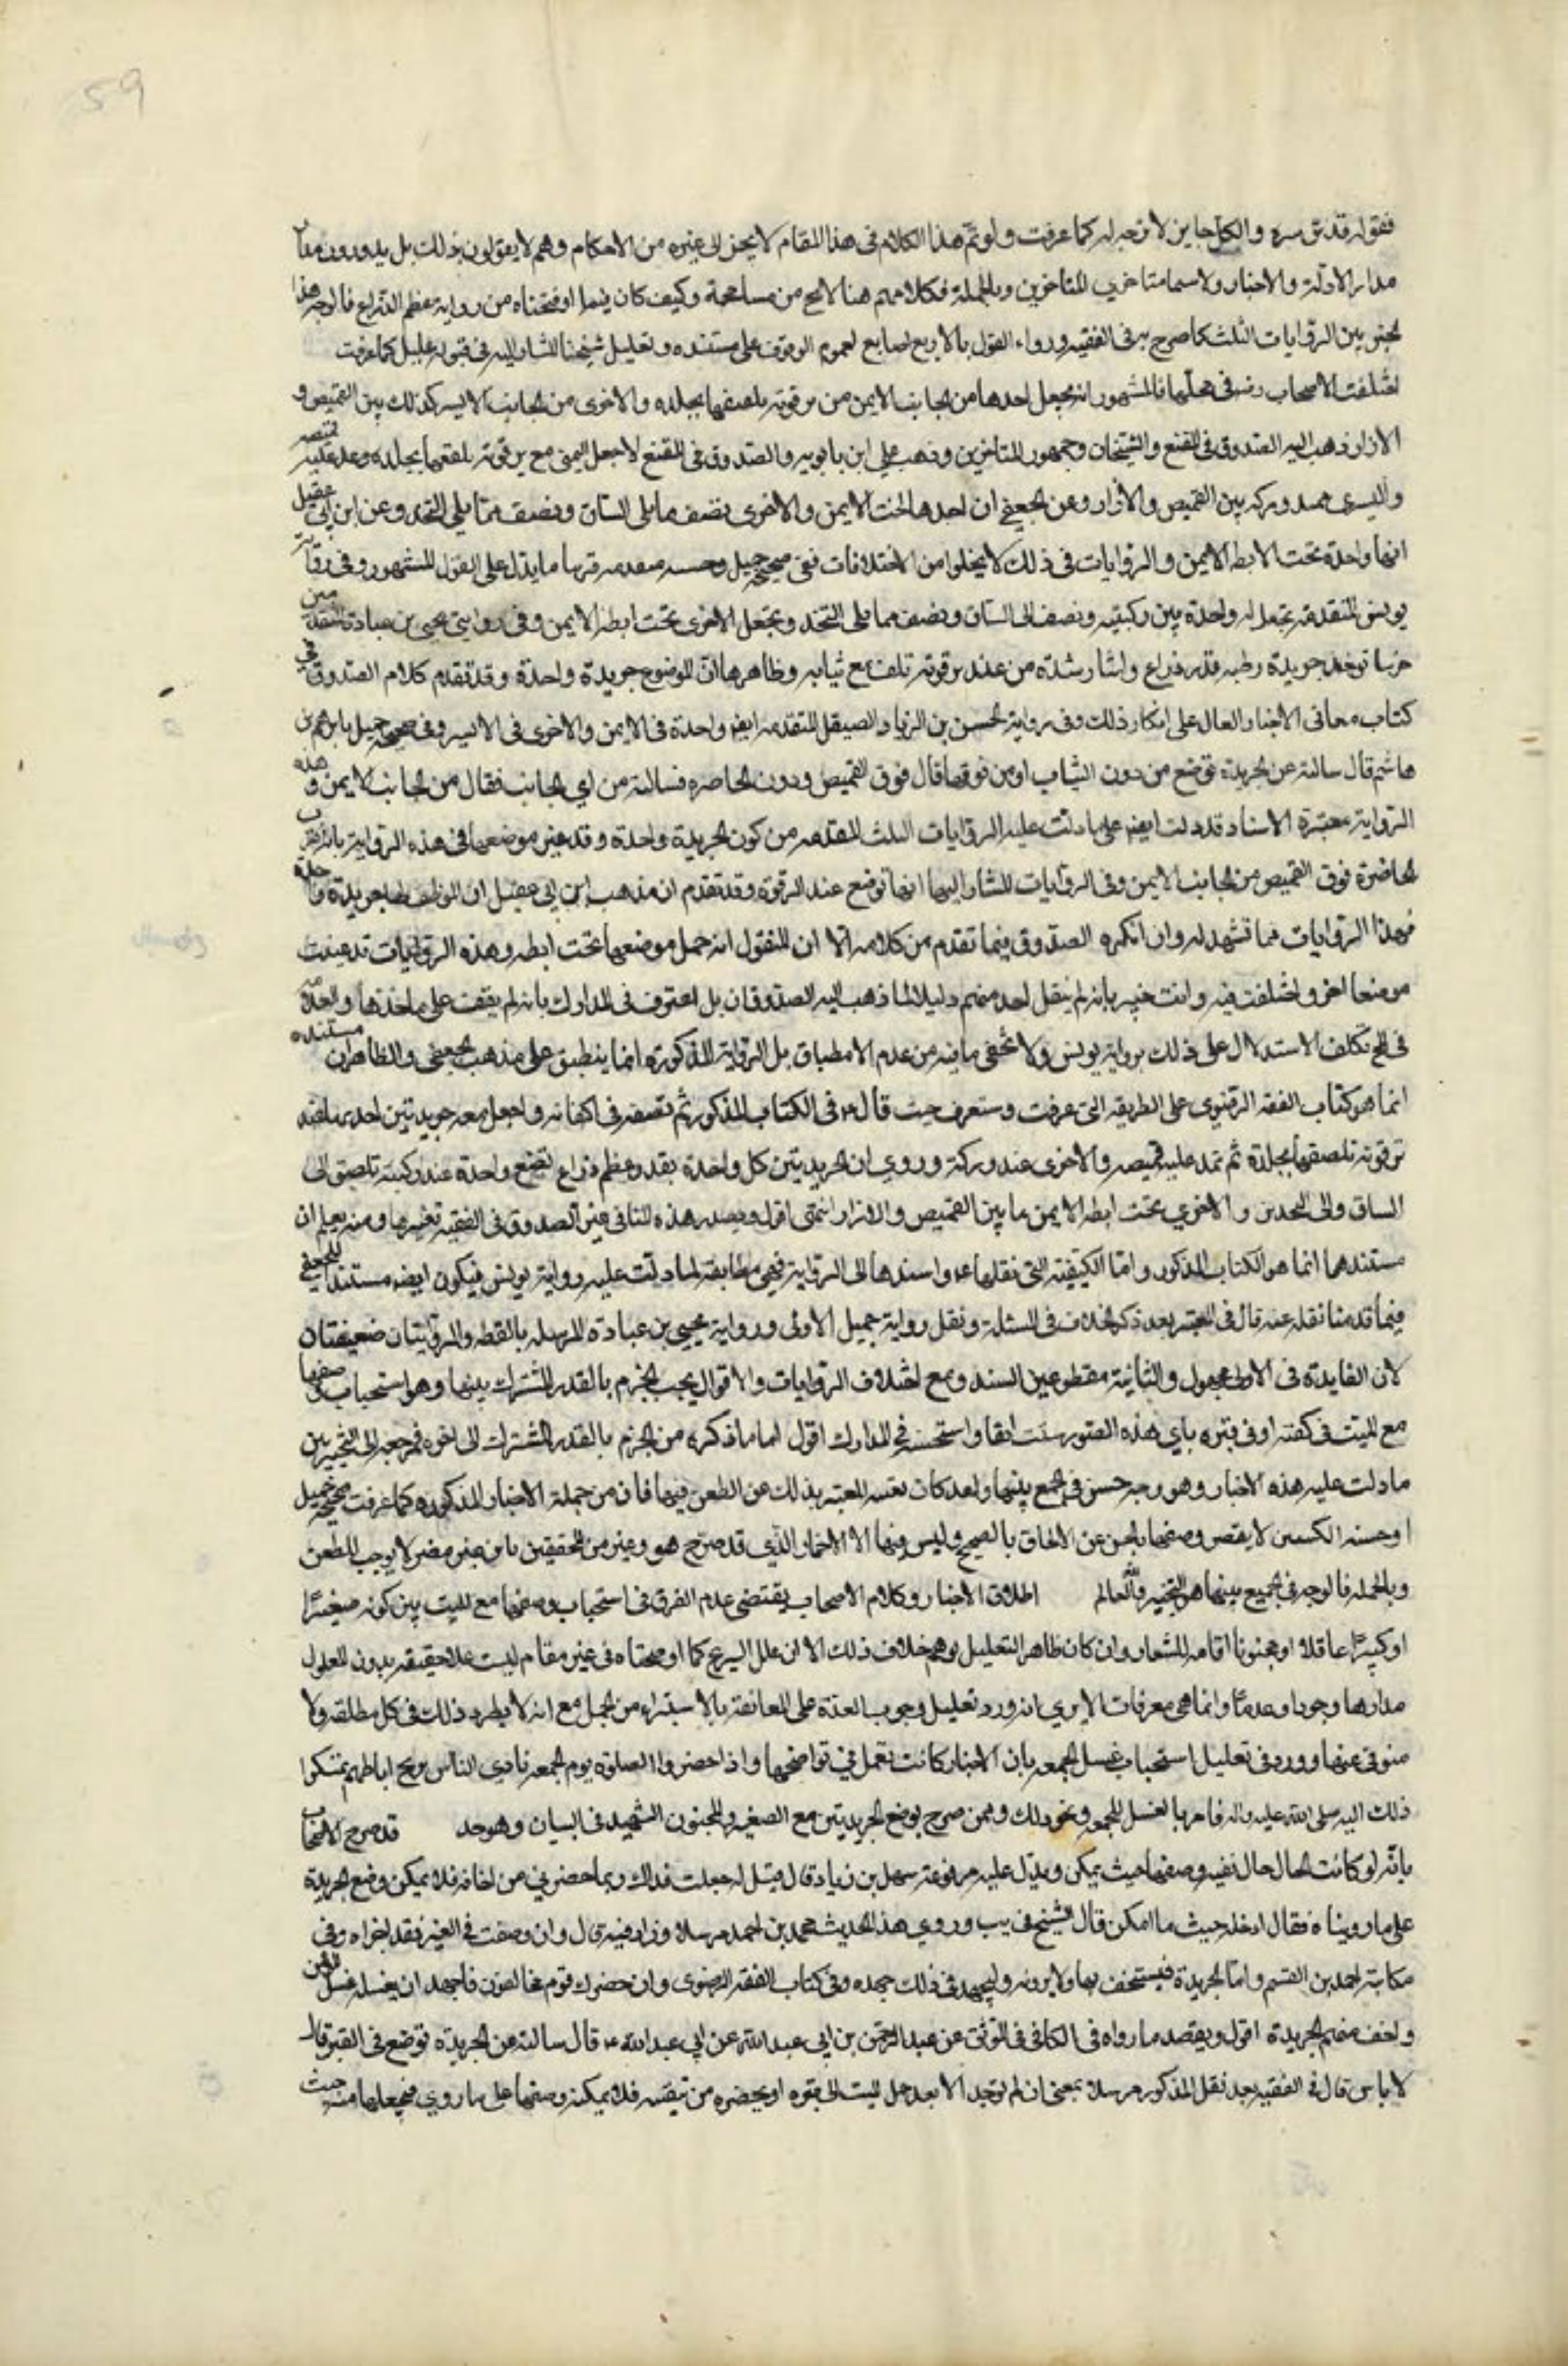 59
فقوله قدس سره والكل جايز لا وجه له كما عرفت ولو تم هذا الكلام في هذا المقام لا يجزى غيره من الاحكام وهم لا يقولون بذلك بل يدورون معنا
مدار الادلة والاخبار ولا سيما متاخري المتاخرين وبالجملة فكلامهم هنا لا يخ من مسامحة وكيف كان فيما اوضحناه من رواية عظم الذراع فالوجه هذا
الجمع بين الروايات الثلث كما صرح به في الفقيه ورواء القول بالاربع اصابع لعدم الوقوف على مستنده وتعليل شيخنا المشار اليه في قبوله عليل كما عرفت
اختلفت الاصحاب رض في محلها فالمشهور انه يجعل احدها من الجانب الايمن من ترقوته يلصقها بجلده والاخرى من الجانب الايسر كذلك بين القميص و
الازار ذهب اليه الصدوق في المقنع والشيخان وجمهور المتاخرين وذهب علي ابن بابويه والصدوق في المقنع لا جعل اليمنى مع ترقوته يلصقها بجلده ويمد عليه قميصه
واليسرى عند وركه بين القميص والازار وعن الجعفي ان احدها تحت الايمن والاخرى نصف مما يلي الساق ونصف مما يلي الفخذ وعن ابن ابي عقيل
انها واحدة تحت الابط الايمن والروايات في ذلك لا يخلوا من الاختلافات ففي صحيح جميل وحسنه متقدمه قريبا ما يدل على القول المشهور وفي رواية
يونس المتقدمة يجعل له واحدة بين ركبتيه ونصف الى الساق ونصف مما يلي الفخذ ويجعل الاخرى تحت ابطه الايمن وفي روايتي يحيى بن عبادة المتقدمتين
خرسا توخذ جريدة رطبه قدر ذراع واشار بيده من عند ترقوته تلف مع ثيابه وظاهرها ان الموضوع جريدة واحدة وقد تقدم كلام الصدوق في
كتاب معاني الاخبار الدال على انكار ذلك وفي رواية الحسن بن الزياد الصيقل المتقدمه ايضا واحدة في الايمن والاخرى في الايسر وفي صحيحه جميل بابراهيم بن
هاشم قال سالته عن الجريدة توضع من دون الثياب او من فوقها قال فوق القميص ودون الخاصره فسالته من اي الجانب فقال من الجانب الايمن وهذه
الرواية معتبرة الاسناد قد دلت ايضا على ما دلت عليه الروايات الثلث المتقدمه من كون الجريدة واحدة وقد عين موضعها في هذه الرواية بانه قرب
الخاضرة فوق القميص من الجانب الايمن وفي الروايات المشار اليها انها توضع عند الترقوة وقد تقدم ان مذهب ابن ابي عقيل ان الموظف جريدة واحدة
فهذا الروايات مما تشهد له وان انكره الصدوق فيما تقدم من كلامه الا ان المنقول انه جعل موضعها تحت ابطه وهذه الروايات قد عينت
موضعا اخر واختلفت فيه وانت خبير بانه لم ينقل احد منهم دليلا لما ذهب اليه الصدوقان بل اعترف في المدارك بانه لم يقف على ماخذها والعلامة
في لح تكلف الاستدلال على ذلك برواية يونس ولا يخفى ما فيه من عدم الانطباق بل الرواية المذكوره انما ينطبق على مذهب الجعفي والظاهر ان مستنده
انما هو كتاب الفقه الرضوي على الطريقه التي عرفت وستعرف حيث قال ع في الكتاب المذكور ثم تضعه في اكفانه واجعل معه جريدتين احديهما عند
ترقوته تلصقها بجلده ثم تمد عليه قميصه والاخرى عند وركه وروي ان الجريدتين كل واحدة بقدر عظم ذراع تضع واحدة عند ركبته تلصق الى
الساق والى الفخذين والاخرى تحت ابطه الايمن ما بين القميص والازار انتهى اقول وبصدر هذه عبر الصدوق في الفقيه ومنه يعلم ان
مستندهما انما هو الكتاب المذكور واما الكيفيه التي نقلها ع واسندها الى الرواية فهي مطابقة لما دلت عليه رواية يونس فيكون ايضا مستند الجعفي
فيما قدمنا نقله عنه قال في المعتبر بعد ذكر الخلاف في المسئلة ونقل رواية جميل الاولى ورواية يحيى بن عبادة المرسله بالقطه والروايتان ضعيفتان
لان الفايدة في الاولى مجهول والثانية مقطوعين السند ومع اختلاف الروايات والاقوال يجب الجزم بالقدر المشترك بينها وهو استحباب وضعها
مع الميت في كفنه او في قبره باي هذه الصور شئت انتهى واستحسنه في المدارك اقول اما ما ذكره من الجزم بالقدر المشترك الى اخره فمرجعه الى التخيير بين
ما دلت عليه هذه الاخبار وهو وجه حسن في الجمع بينها ولقد كان بغنيه المعتبر بذلك عن الطعن فيها فان من جملة الاخبار المذكوره كما عرفت صحيحه جميل
او حسنه الكسين لا يقصر وصفها بالحسن عن الالحاق بالصحيح وليس فيها الا الاضمار الذي قد صرح هو وغيره من المحققين بانه غير مضر لا يوجب الطعن
وبالجمله فالوجه في الجمع بينها هو التخيير والله العالم اطلاق الاخبار وكلام الاصحاب يقتضي عدم الفرق في استحباب وضعها مع الميت بين كونه صغيرا
او كبيرا عاقلا او مجنونا اقامه للشعار وان كان ظاهر التعليل يوهم خلاف ذلك الا ان علل الشرع كما اوضحناه في غير مقام ليست عللا حقيقيه يدور المعلول
مدارها وجودا وعدما وانما هي معرفات الا يرى انه ورد تعليل وجوب العدة على المعانقة بالاستبراء من الحمل مع انه لا يطرد ذلك في كل مطلقه ولا
متوفى عنها وورد في تعليل استحباب غسل الجمعه بان الانصار كانت تعمل في نواضحها واذا حضروا الصلوة يوم الجمعه تاذى الناس بريح اباطهم فشكوا
ذلك اليه صلى الله عليه واله فامر بالغسل للجمعه ونحو ذلك وممن صرح بوضع الجريدتين مع الصغير والمجنون الشهيد في البيان وهو جيد قد صرح الاصحاب
بانه لو كانت الحال حال تقيه وضعها حيث يمكن ويدل عليه مرفوعة سهل بن زياد قال قيل له جعلت فداك ربما حضرني من اخافه فلا يمكن وضع الجريدة
على ما رويناه فقال ادخله حيث ما امكن قال الشيخ في يب وروي هذا الحديث محمد بن احمد مرسلا وزاد فيه قال وان وضعت في القبر فقد اجزاه وفي
مكاتبة احمد بن القسم واما الجريدة فيستخف بها ولا يرونه وليجهد في ذلك جهده وفي كتاب الفقه الرضوي وان حضرك قوم مخالفون فاجهد ان يغسله غسل المؤمن
واخف منهم الجريدة اقول ويعضده ما رواه في الكافي في الموثق عن عبد الرحمن بن ابي عبد الله عن ابي عبد الله ع قال سالته عن الجريدة توضع في القبر قال
لا باس قال في الفقيه بعد نقل المذكور مرسلا بمعنى ان لم توجد الا بعد حمل الميت الى قبره او يحضره من تقيه فلا يمكنه وضعها على ما روي فيجعلها معه حيث